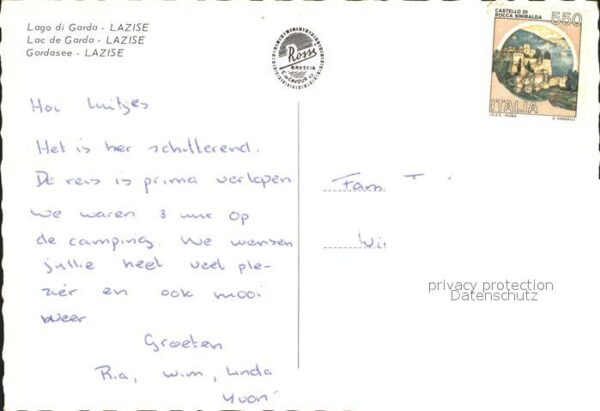 Lago di Garda - LAZISE
Lac de Garda - LAZISE
Gardasee - LAZISE
Rossi
BRESCIA
CASTELLO DI
ROCCA SINIBALDA
550
ITALIA
I.P.Z.S. - ROMA
Hoi Luitjes
Het is hier schitterend.
De reis is prima verlopen
We waren 3 uur op
de camping. We wensen
jullie heel veel ple-
zier en ook mooi
weer
Groeten
Ria, Wim, Linda
Yvon
Fam T
Wi
privacy protection
Datenschutz